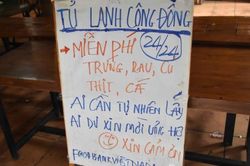 TỦ LẠNH CỘNG ĐỒNG
→ MIỄN PHÍ 24/24
TRỨNG, RAU, CỦ
THỊT, CÁ
AI CẦN TỰ NHIÊN LẤY
AI DƯ XIN MỜI ỦNG HỘ
XIN CẢM ƠN
FOODBANK VIỆT NAM